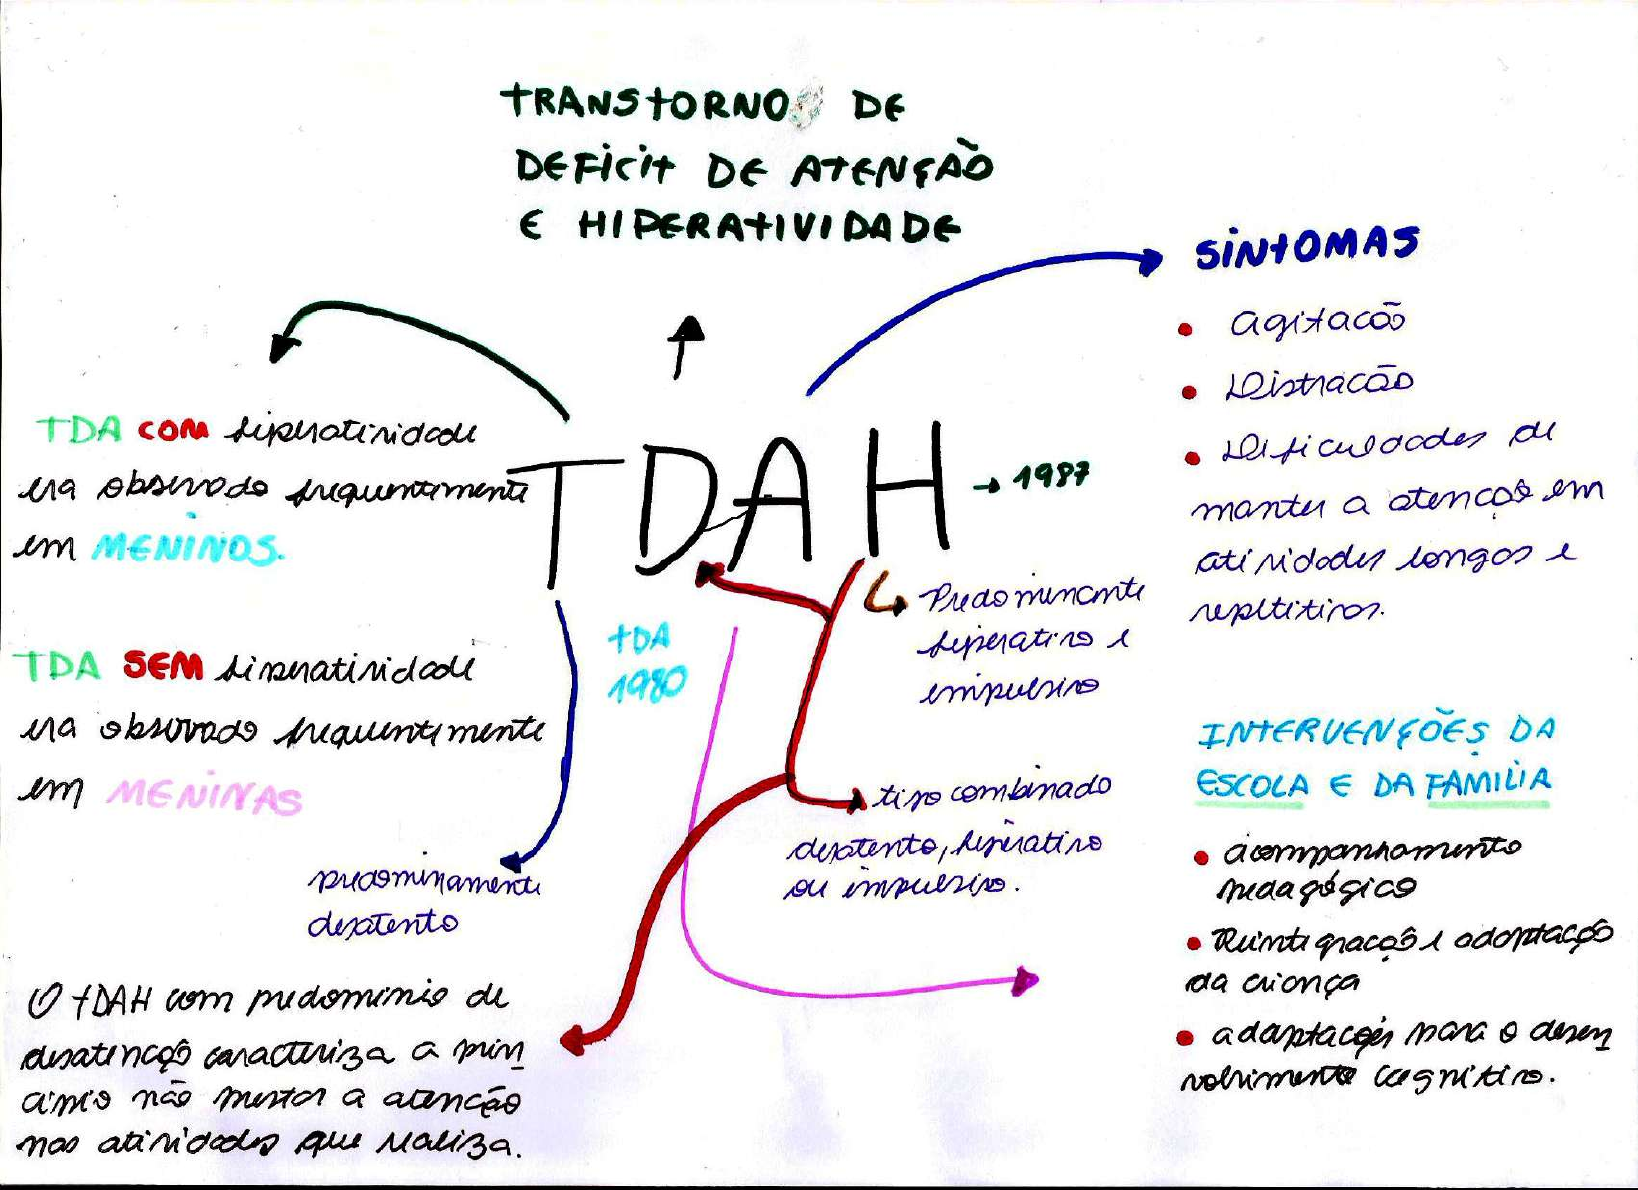 TRANSTORNO DE
DEFICIT DE ATENÇÃO
E HIPERATIVIDADE
SINTOMAS
• agitacão
• Distracão
• Dificuldades de
manter a atenção em
atividades longos e
repetitivos.
TDA COM hiperatividade
era observado frequentemente
em MENINOS.
TDAH → 1987
TDA
1980
Predominante
hiperativo e
impulsivo
TDA SEM hiperatividade
era observado frequentemente
em MENINAS
INTERVENÇÕES DA
ESCOLA E DA FAMILIA
tipo combinado
desatento, hiperativo
ou impulsivo.
predominamente
desatento
• acompanhamento
pedagógico
• Reintegração e adaptação
da criança
• adaptações para o desen
volvimento cognitivo.
O TDAH com predominio de
desatenção caracteriza a
não prestar a atencão
nas atividades que realiza.